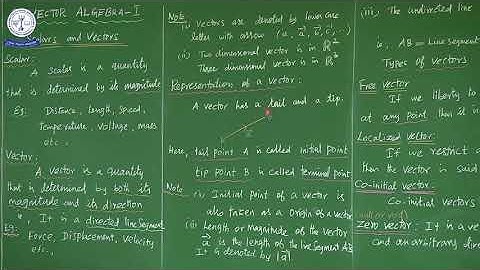 VECTOR ALGEBRA-I
Scalars and Vectors
Scalar:
A scalar is a quantity
that is determined by its magnitude
Eg: Distance, Length, Speed,
Temperature, Voltage, mass
etc.,
Vector:
A vector is a quantity
that is determined by both its
magnitude and its direction
It is a directed line segment
Eg: Force, Displacement, Velocity
etc.,
Note
(i) Vectors are denoted by lower case
letter with arrow
(ii) Two dimensional vector is in R²
Three dimensional vector is in R³
Representation of a vector:
A vector has a tail and a tip.
Here, tail point A is called initial point
tip point B is called terminal point
Note (i) Initial point of a vector is
also taken as a origin of a vector
(ii) Length or magnitude of the vector
a⃗ is the length of the line segment AB
It is denoted by |a⃗|
(iii) The undirected line
AB = Line segment
Types of vectors
Free vector
If we liberty to
at any point then it is
Localized vector:
If we restrict a
then the vector is said
Co-initial vector:
Co-initial vectors
Zero vector: It is a ve
and an arbitrary dire